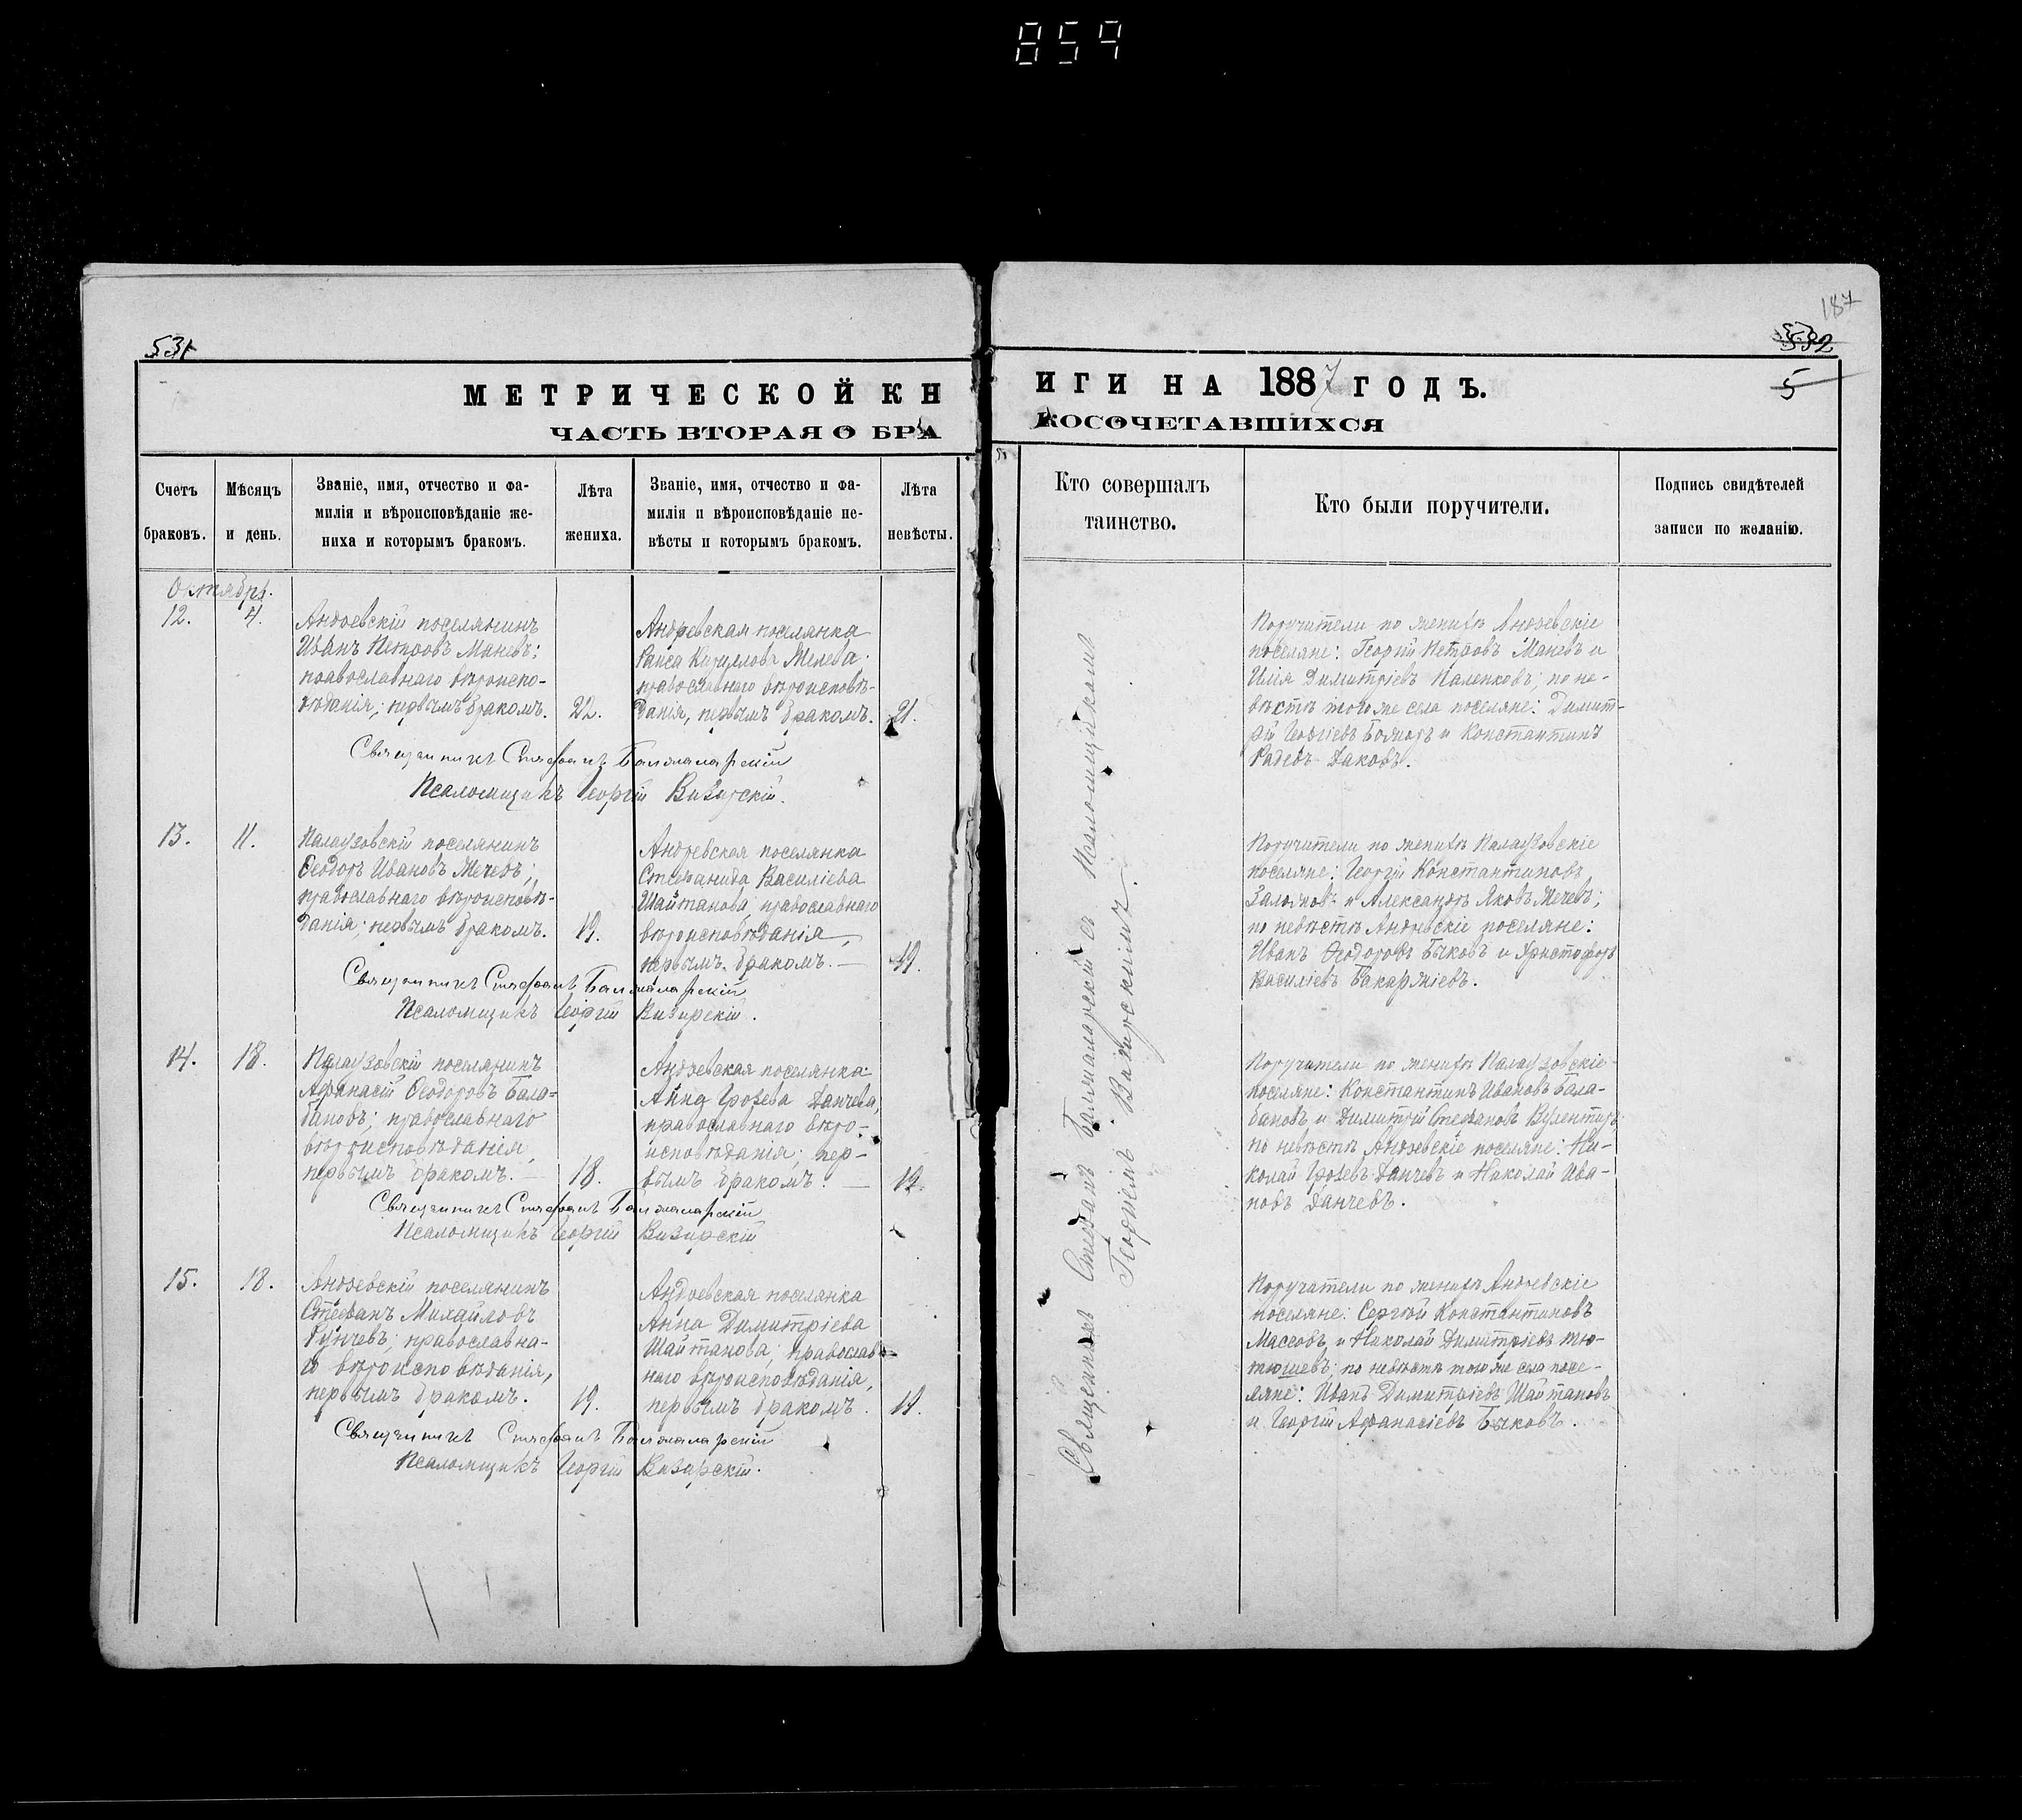 859
187
531
532
5
МЕТРИЧЕСКОЙ КНИГИ НА 1887 ГОДЪ.
ЧАСТЬ ВТОРАЯ О БРАКОСОЧЕТАВШИХСЯ
Счетъ браковъ.
Мѣсяцъ и день.
Званіе, имя, отчество и фа-
милія и вѣроисповѣданіе же-
ниха и которымъ бракомъ.
Лѣта жениха.
Званіе, имя, отчество и фа-
милія и вѣроисповѣданіе не-
вѣсты и которымъ бракомъ.
Лѣта невѣсты.
Кто совершалъ
таинство.
Кто были поручители.
Подпись свидѣтелей
записи по желанію.
Октябрь.
12. 4.
Андреевскій поселянинъ
Иванъ Петровъ Маневъ;
православнаго вѣроиспо-
вѣданія; первымъ бракомъ.
22.
Андревская поселянка
Раиса Кириллова Желева
православнаго вѣроисповѣ-
данія, первымъ бракомъ.
21.
Поручители по женихѣ Андреевскіе
поселяне: Георгій Петровъ Маневъ и
Илія Димитріевъ Паленковъ; по не-
вѣстѣ того же села поселяне: Димит-
рій Георгіевъ и Константинъ
Радевъ Даковъ.
Священникъ Стефанъ Балжаларскій
Псаломщикъ Георгій Визирскій.
13. 11.
Палаузовскій поселянинъ
Ѳеодоръ Ивановъ Мечевъ;
православнаго вѣроисповѣ-
данія; первымъ бракомъ.
19.
Андревская поселянка
Стефанида Василіева
Шайтанова, православнаго
вѣроисповѣданія,
первымъ бракомъ.
19.
Поручители по женихѣ Палаузовскіе
поселяне: Георгій Константиновъ
и Александръ Яковъ Мечевъ;
по невѣстѣ Андревскіе поселяне:
Иванъ Ѳеодоровъ Быковъ и Христофоръ
Василіевъ Бакаржіевъ.
Священникъ Стефанъ Балжаларскій
Псаломщикъ Георгій Визирскій.
14. 18.
Палаузовскій поселянинъ
Афанасій Ѳеодоровъ Бала-
бановъ; православнаго
вѣроисповѣданія,
первымъ бракомъ.
18.
Андреевская поселянка
Анна Грозева Данчева,
православнаго вѣро-
исповѣданія; пер-
вымъ бракомъ.
Поручители по женихѣ Палаузовскіе
поселяне: Константинъ Ивановъ Бала-
бановъ и Димитрій Стефановъ
по невѣстѣ Андреевскіе поселяне: Ни-
колай Грозевъ Данчевъ и Николай Ива-
новъ Данчевъ.
Священникъ Стефанъ Балжаларскій
Псаломщикъ Георгій Визирскій
15. 18.
Андреевскій поселянинъ
Стефанъ Михайловъ
Рунчевъ; православна-
го вѣроисповѣданія,
первымъ бракомъ.
19.
Андреевская поселянка
Анна Димитріева
Шайтанова; православ-
наго вѣроисповѣданія,
первымъ бракомъ.
Поручители по женихѣ Андревскіе
поселяне: Сергѣй Константиновъ
Массовъ и Николай Димитріевъ Тю-
тюшевъ; по невѣстѣ того же села посе-
ляне: Иванъ Димитріевъ Шайтановъ
и Георгій Афанасіевъ Быковъ.
Священникъ Стефанъ Балжаларскій
Псаломщикъ Георгій Визирскій.
Священникъ Стефанъ Балжаларскій съ Псаломщикомъ
Георгіемъ Визирскимъ.